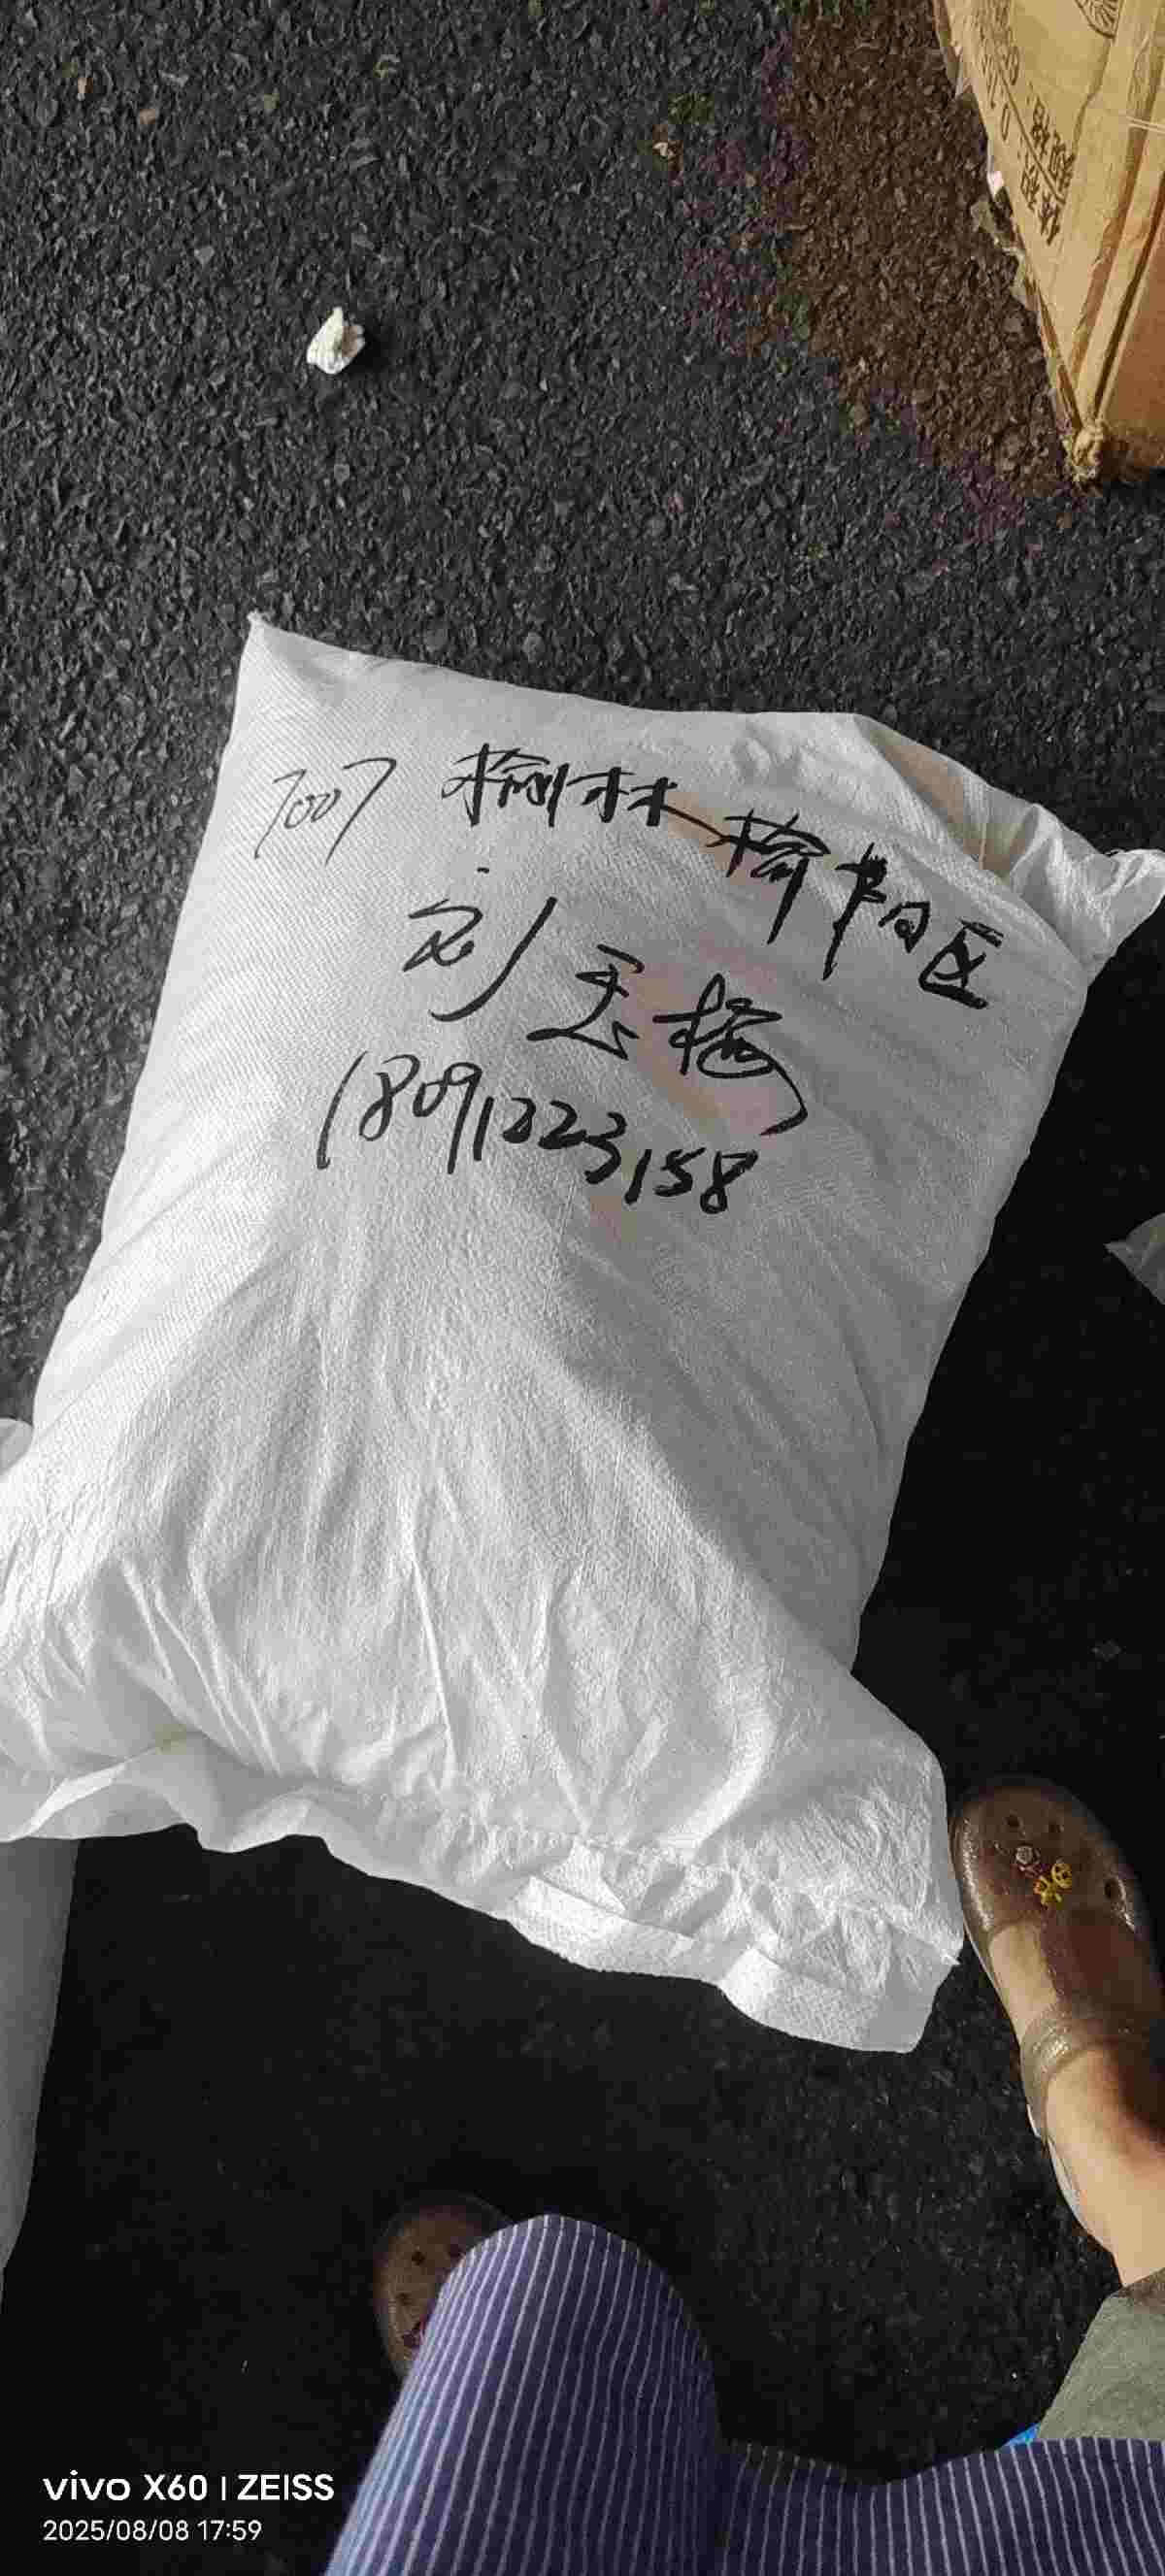 7007 榆林榆阳区
刘玉梅
18091223158
体积
vivo X60 | ZEISS
2025/08/08 17:59